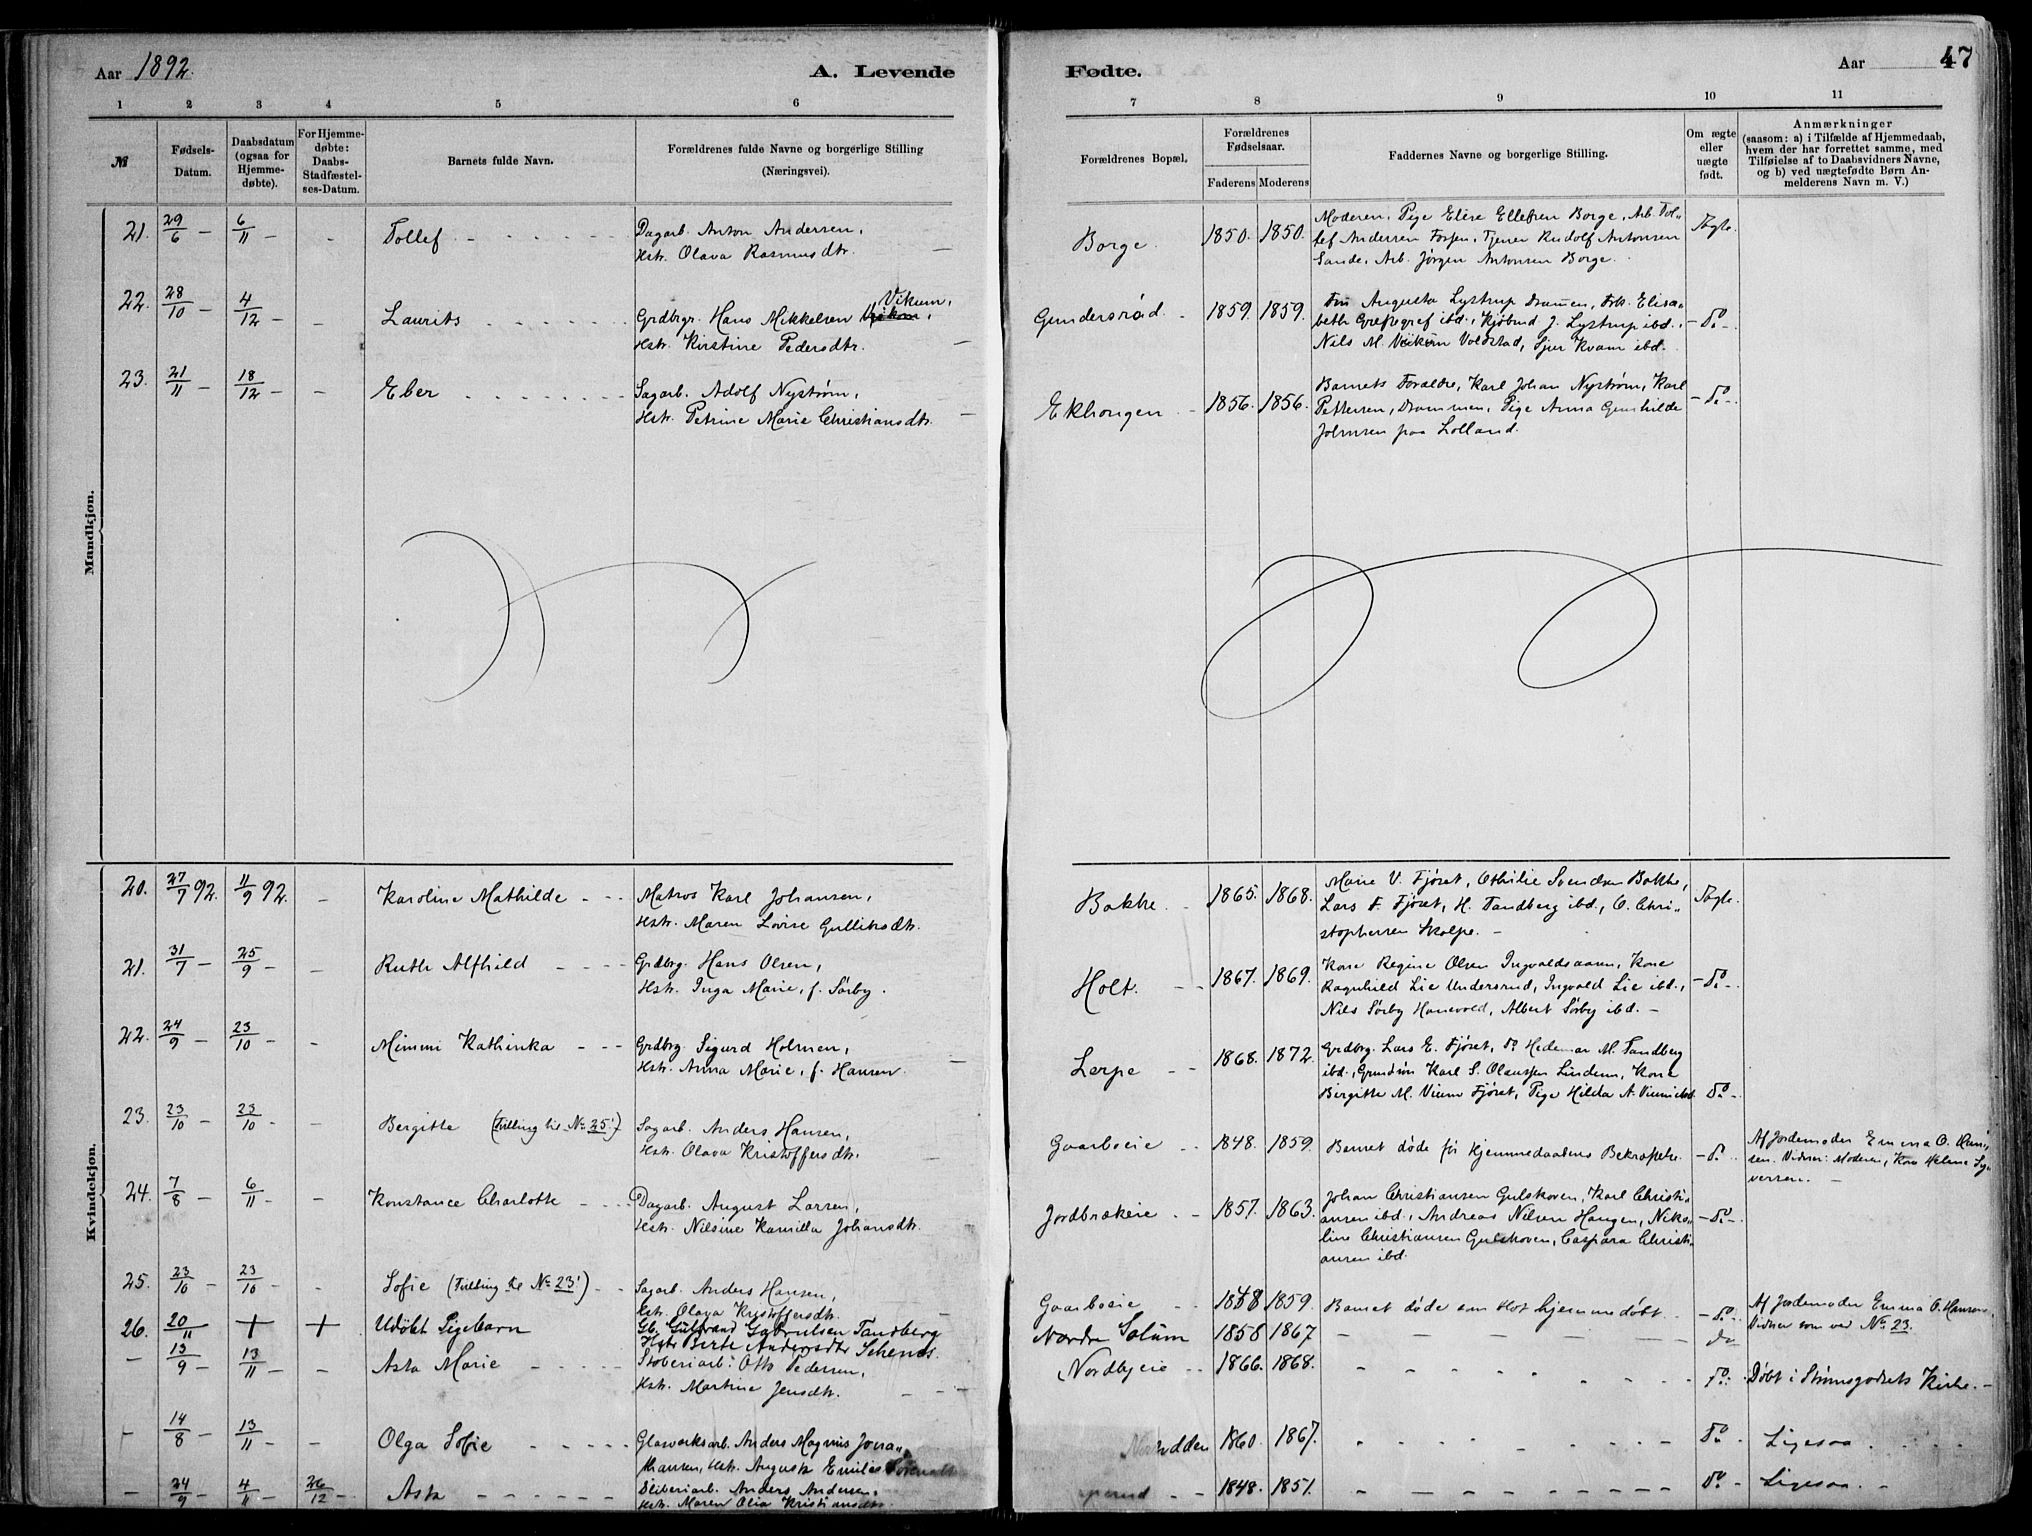 Aar 1892.
A. Levende
Fødte.
Aar
47
1 2 3 4 5 6 7 8 9 10 11
№
Fødsels-
Datum.
Daabsdatum
(ogsaa for
Hjemme-
døbte).
For Hjemme-
døbte:
Daabs-
Stadfæstel-
ses-Datum.
Barnets fulde Navn.
Forældrenes fulde Navne og borgerlige Stilling
(Næringsvei).
Forældrenes Bopæl.
Forældrenes
Fødselsaar.
Faderens Moderens
Faddernes Navne og borgerlige Stilling.
Om ægte
eller
uægte
født.
Anmærkninger
(saasom: a) i Tilfælde af Hjemmedaab,
hvem der har forrettet samme, med
Tilføielse af to Daabsvidners Navne,
og b) ved uægtefødte Børn An-
melderens Navn m. V.)
Mandkjøn.
21. 29/6 - 6/11 - - Tollef
Dagarb. Anton Andersen,
Hstr. Olava Rasmusdtr.
Borge. 1850. 1850.
Moderen, Pige Elise Ellefsen Borge, Arb. Tol-
lef Andersen Fossen, Tjener Rudolf Antonsen
Sande, Arb. Jørgen Antonsen Borge.
Ægte.
22. 28/10 - 4/12 - - Laurits
Vikum,
Grdbrgr. Hans Mikkelsen
Hstr. Kirstine Pedersdtr.
Gundersrød. 1859. 1859.
Fru Augusta Lystrup Drammen, Frk. Elisa-
beth ibd., Kjøbmd J. Lystrup ibd.,
Nils M. Vikum Voldstad, Sjur Kvam ibd.
- Do -
23. 21/11 - 18/12 - - Eber
Sagarb. Adolf Nystrøm,
Hstr. Petrine Marie Christiansdtr.
Ekhougen 1856. 1856.
Barnets Forældre, Karl Johan Nystrøm, Karl
Pettersen, Drammen, Pige Anna Gunhilde
Johnsen paa Lolland.
- Do -
Kvindekjøn.
20. 27/7 92. 11/9 92. - Karoline Mathilde
Matros Karl Johansen,
Hstr. Maren Lovise Gulliksdtr.
Bakke 1865. 1868.
Marie V. Fjøset, Othilie Svendsen Bakke,
Lars F. Fjøset, H. Tandberg ibd., O. Chri-
stophersen Skalpe. -
Ægte.
21. 31/7 - 25/9 - - Ruth Alfhild
Grdbrg. Hans Olsen,
Hstr. Inga Marie, f. Sørby.
Holt. 1867. 1869.
Kone Regine Olsen Kone
Ragnhild Lie Undersrud, Ingvald Lie ibd.,
Nils Sørby Hanevold, Albert Sørby ibd. -
- Do -
22. 24/9 - 23/10 - - Mimmi Kathinka
Grdbrg. Sigurd Holmen,
Hstr. Anna Marie, f. Hansen.
Lerpe 1868. 1872.
Grdbrg. Lars E. Fjøset, Do M. Tandberg
ibd., Karl S. Olaussen Lindum, Kone
Birgitte M. Vium Fjøset, Pige Hilda A. Vium ibd.
Do -
23. 23/10 - 23/10 - - Bergitte (Tvilling til No 25!)
Sagarb. Anders Hansen,
Hstr. Olava Kristoffersdtr.
Gaarboeie 1848. 1859.
Barnet døde før Hjemmedaabens Bekræftelse.
- Do
Af Jordemoder Emma O. Han-
sen. Vidner: Moderen, Kone Helene Sy-
versen. -
24. 7/8 - 6/11 - - Konstance Charlotte
Dagarb. August Larsen,
Hstr. Nilsine Kamilla Johansdtr.
Jordbrækeie 1857. 1863.
Johan Christiansen Gulskoven, Karl Christi-
ansen ibd., Andreas Nilsen Haugen, Niko-
line Christiansen Gulskoven, Caspara Christi-
ansen ibd.
- Do -
25. 23/10 - 23/10 - - Sofie (Tvilling til No 23!)
Sagarb. Anders Hansen,
Hstr. Olava Kristoffersdtr.
Gaarboeie 1848 1859.
Barnet døde som blot hjemmedøbt.
- Do -
Af Jordemoder Emma O. Hansen.
Vidner som ved No 23.
26. 20/11 + + Udøbt Pigebarn
Gb. Gulbrand Gabrielsen Tandberg
Hstr. Birte Andersdtr.
Nordre Solum 1858 1867
do
- 13/9 - 13/11 - - Asta Marie
Støberiarb. Otto Pedersen,
Hstr. Martine Jensdtr.
Nordbyeie 1866. 1868.
Do
Døbt i Strømsgodsets Kirke. -
- 14/8 - 13/11 - - Olga Sofie
Glasværksarb. Anders Magnus Jona-
Hstr. Augusta Emilie
1860. 1867.
Do
Ligesaa
- 24/9 - 4/11 - 26/12 - Asta
Sliberiarb. Anders Andersen,
Hstr. Maren Olia Kristiansdtr.
1848. 1851.
Do
Ligesaa.